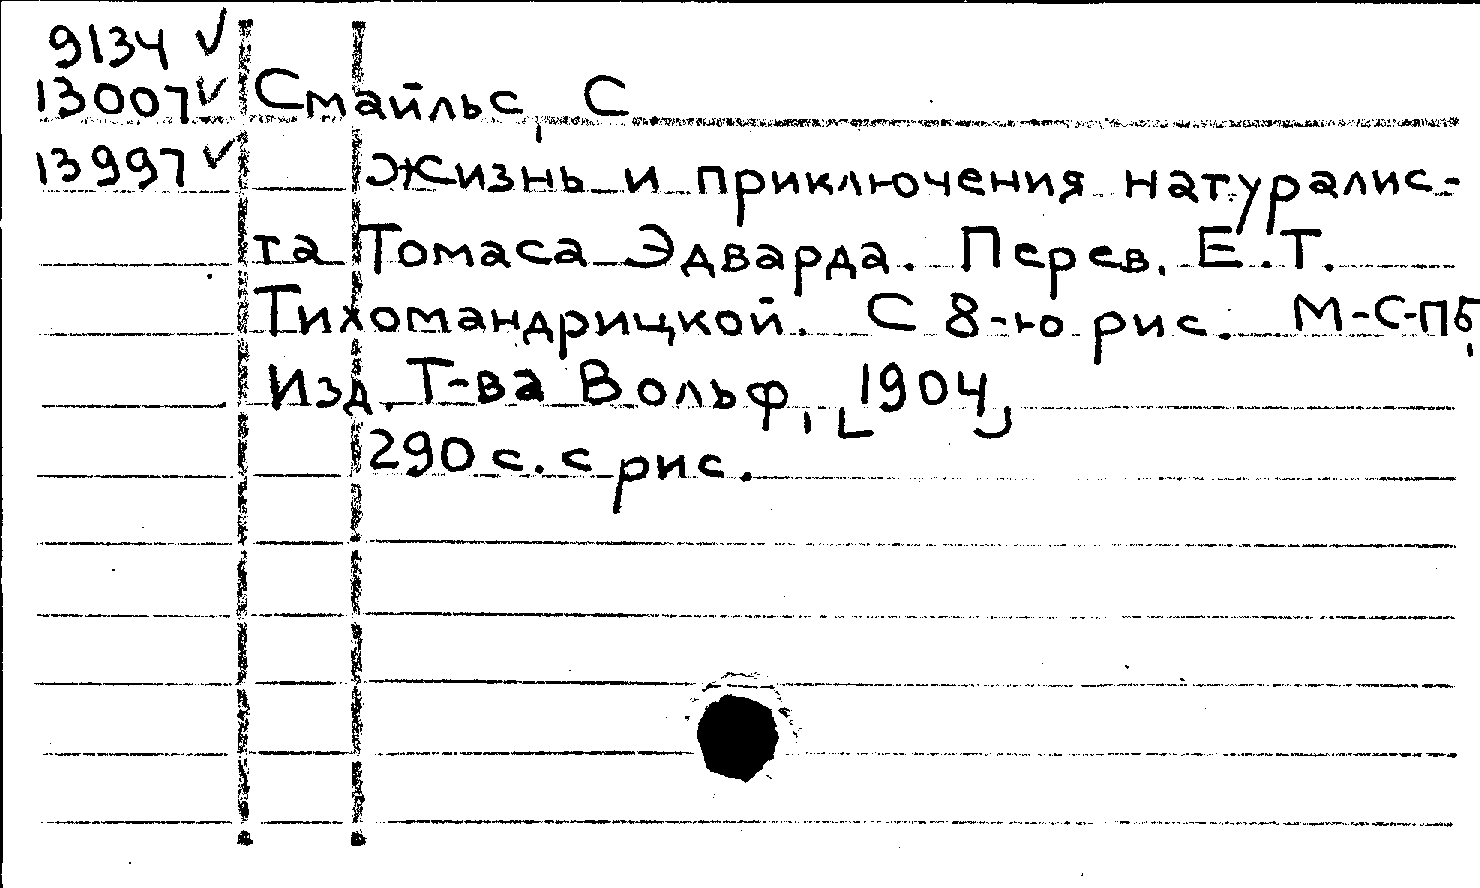 9134 ✓
13007 ✓ Смайльс, С
13997 ✓ Жизнь и приключения натуралис-
та Томаса Эдварда. Перев. Е.Т.
Тихомандрицкой. С 8-ю рис. М-С-ПБ,
Изд. Т-ва Вольф, [1904]
290 с. с рис.